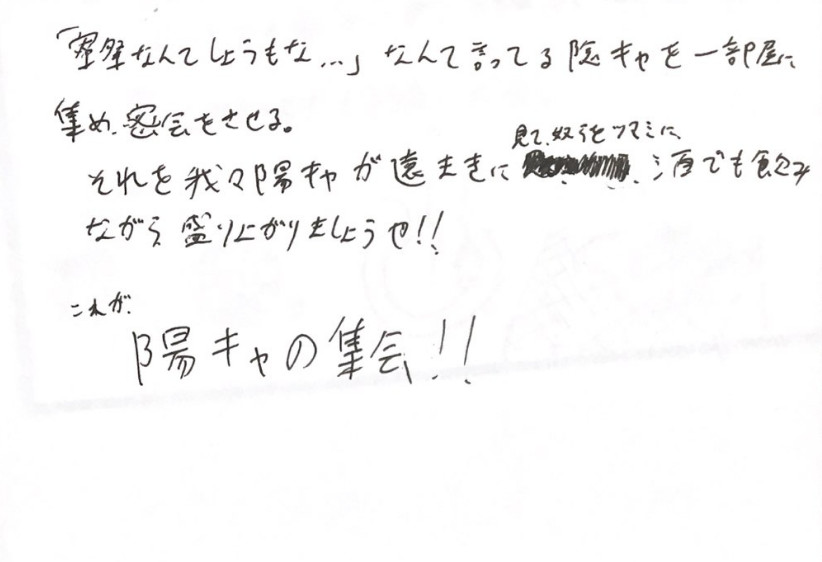 「寮祭なんてしょうもな…」なんて言ってる陰キャを一部屋に
集め、密会をさせる。
それを我々陽キャが遠まきに見て、奴らをツマミに、酒でも飲み
ながら盛り上がりましょうぜ!!
これが、
陽キャの集会!!